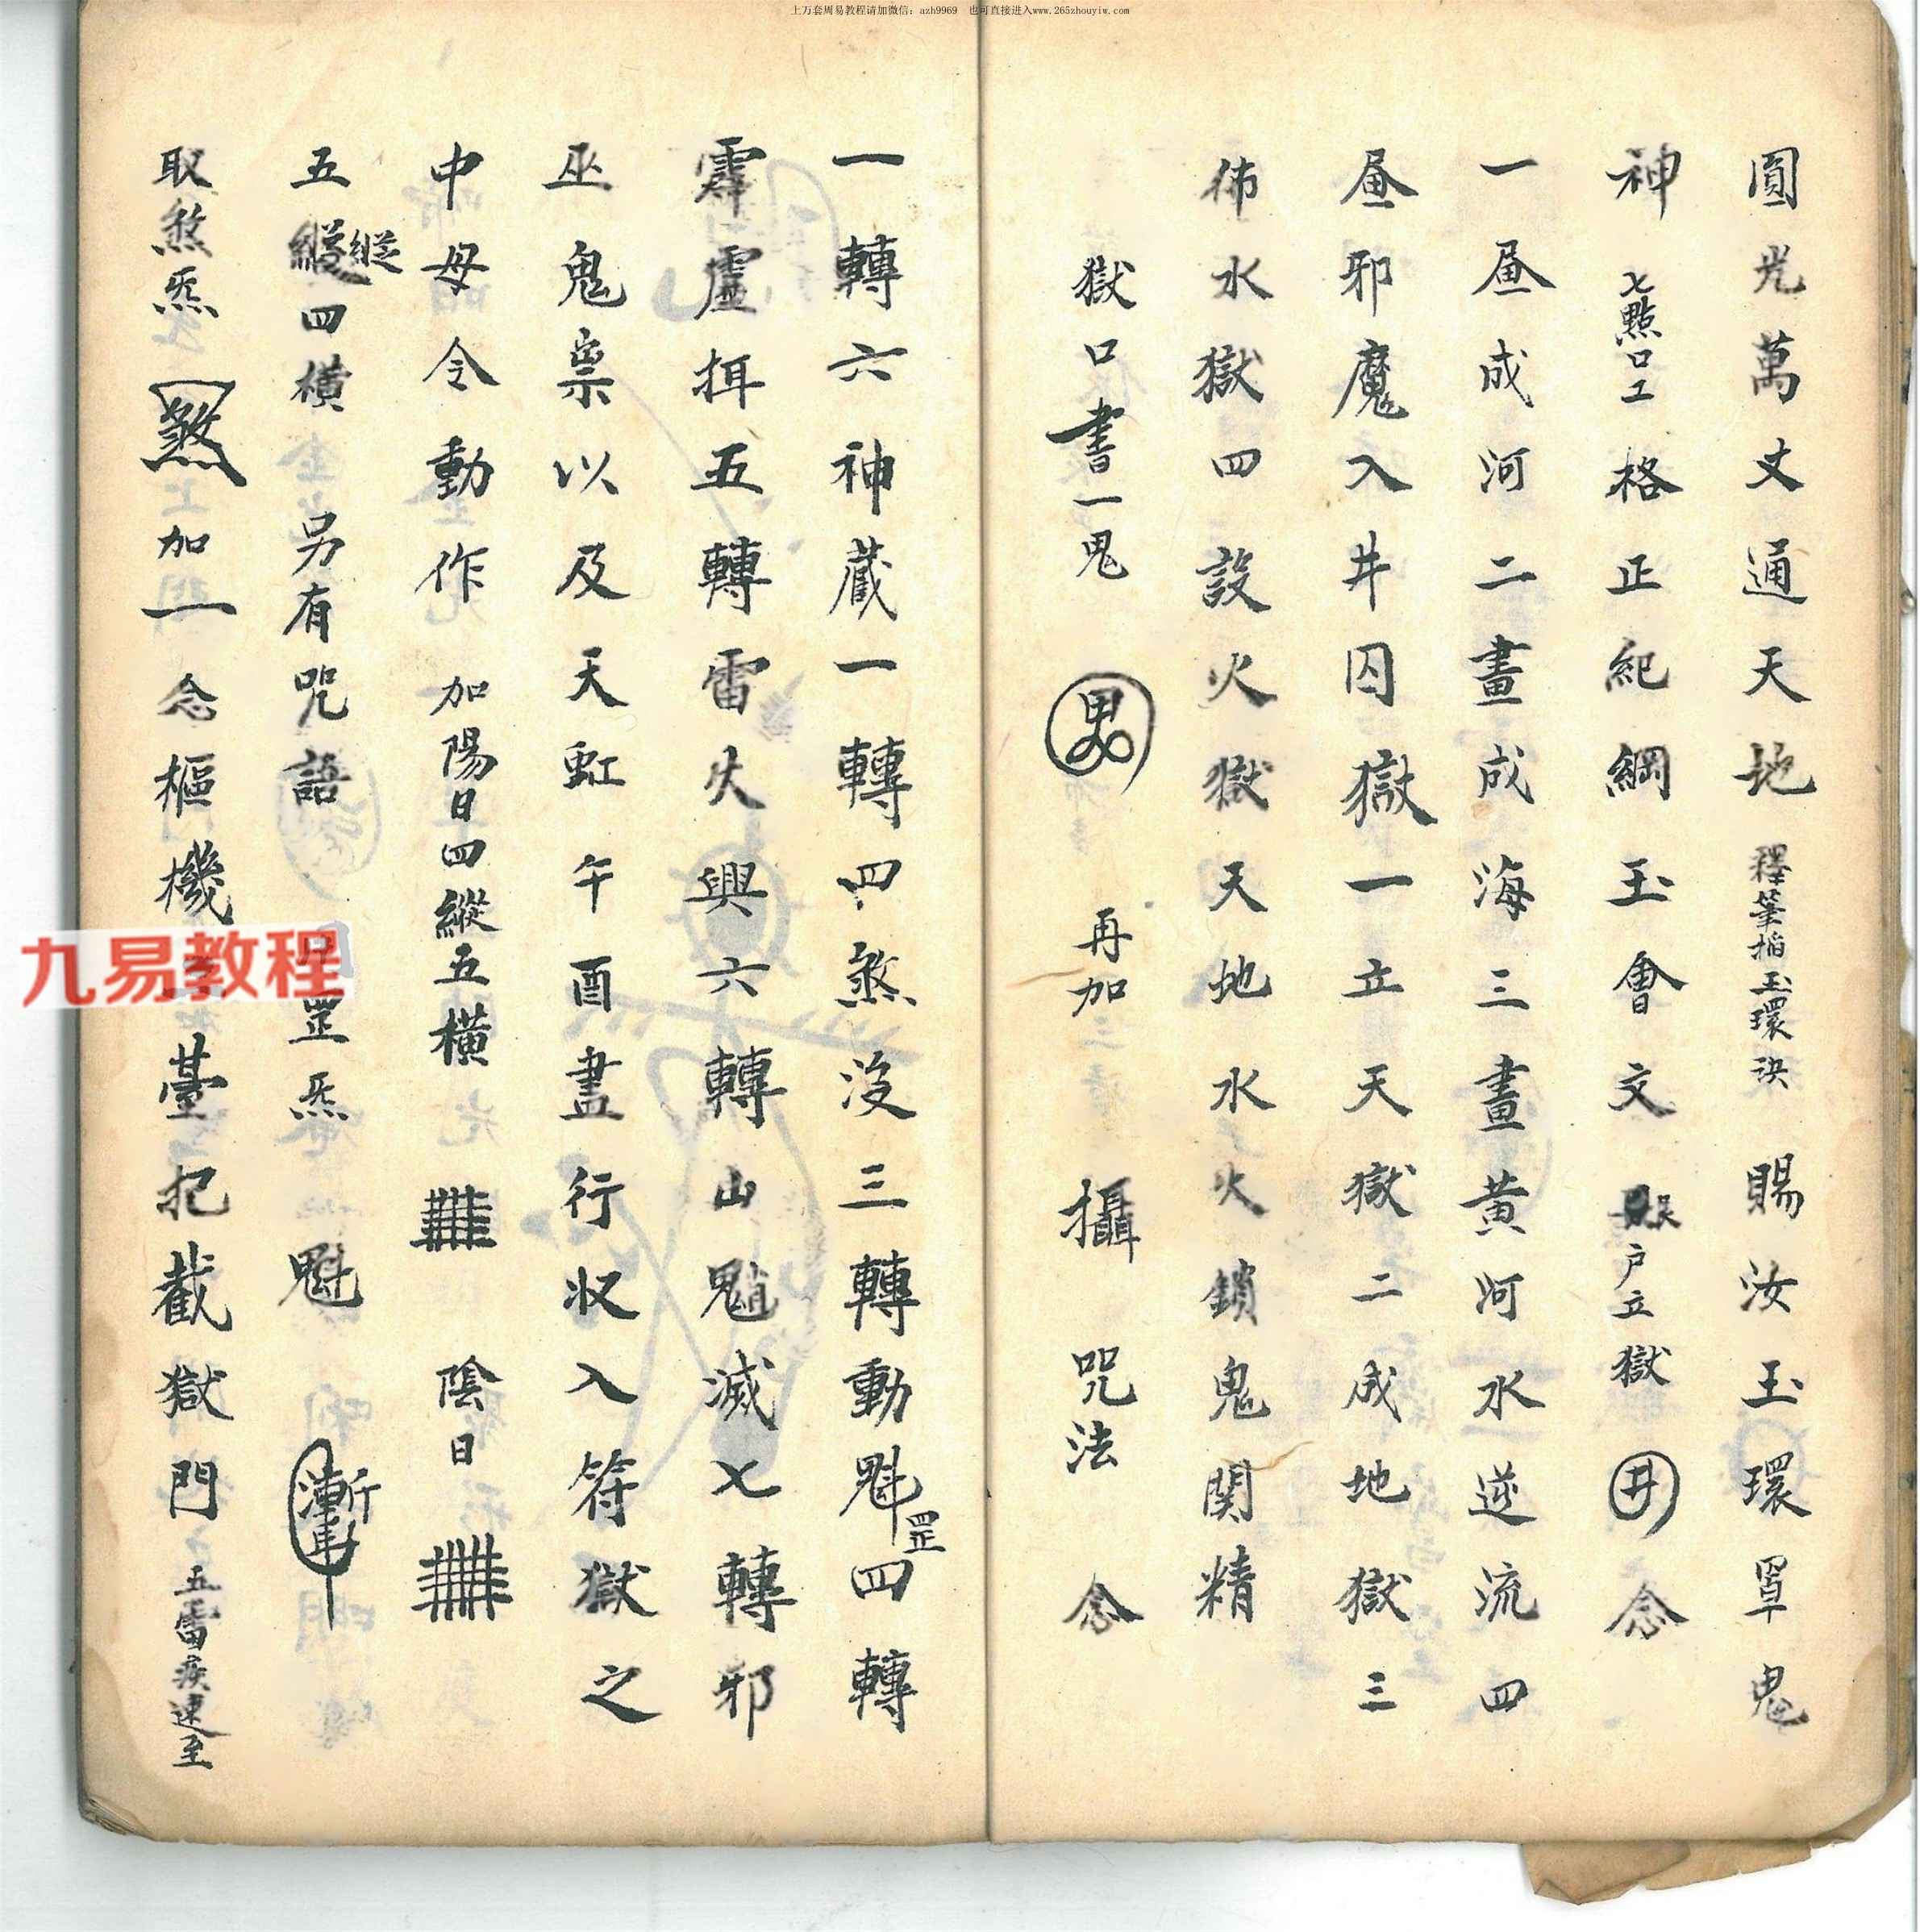 上万套周易教程请加微信：azh9969　也可直接进入www.265zhouyiw.com
圓光萬丈通天地 釋筆掐玉環訣 賜汝玉環罩鬼
神 七點口工 格正紀綱玉會文 戶立獄 井 念
一昼成河二畫成海三畫黃河水逆流四
昼邪魔入井囚獄一立天獄二成地獄三
佈水獄四設火獄天地水火鎖鬼関精
獄口書一鬼 再加 攝 咒法 念
一轉六神藏一轉四煞没三轉動魁罡四轉
霹靂挕五轉雷火興六轉山魈滅七轉邪
巫鬼祟以及天虹午酉盡行收入符獄之
中毋令動作 加陽日四縱五橫 陰日
五縱四橫 另有咒語 罡炁 魁
取煞炁 煞 加一念樞機 臺把截獄門 五雷疾速至
九易教程